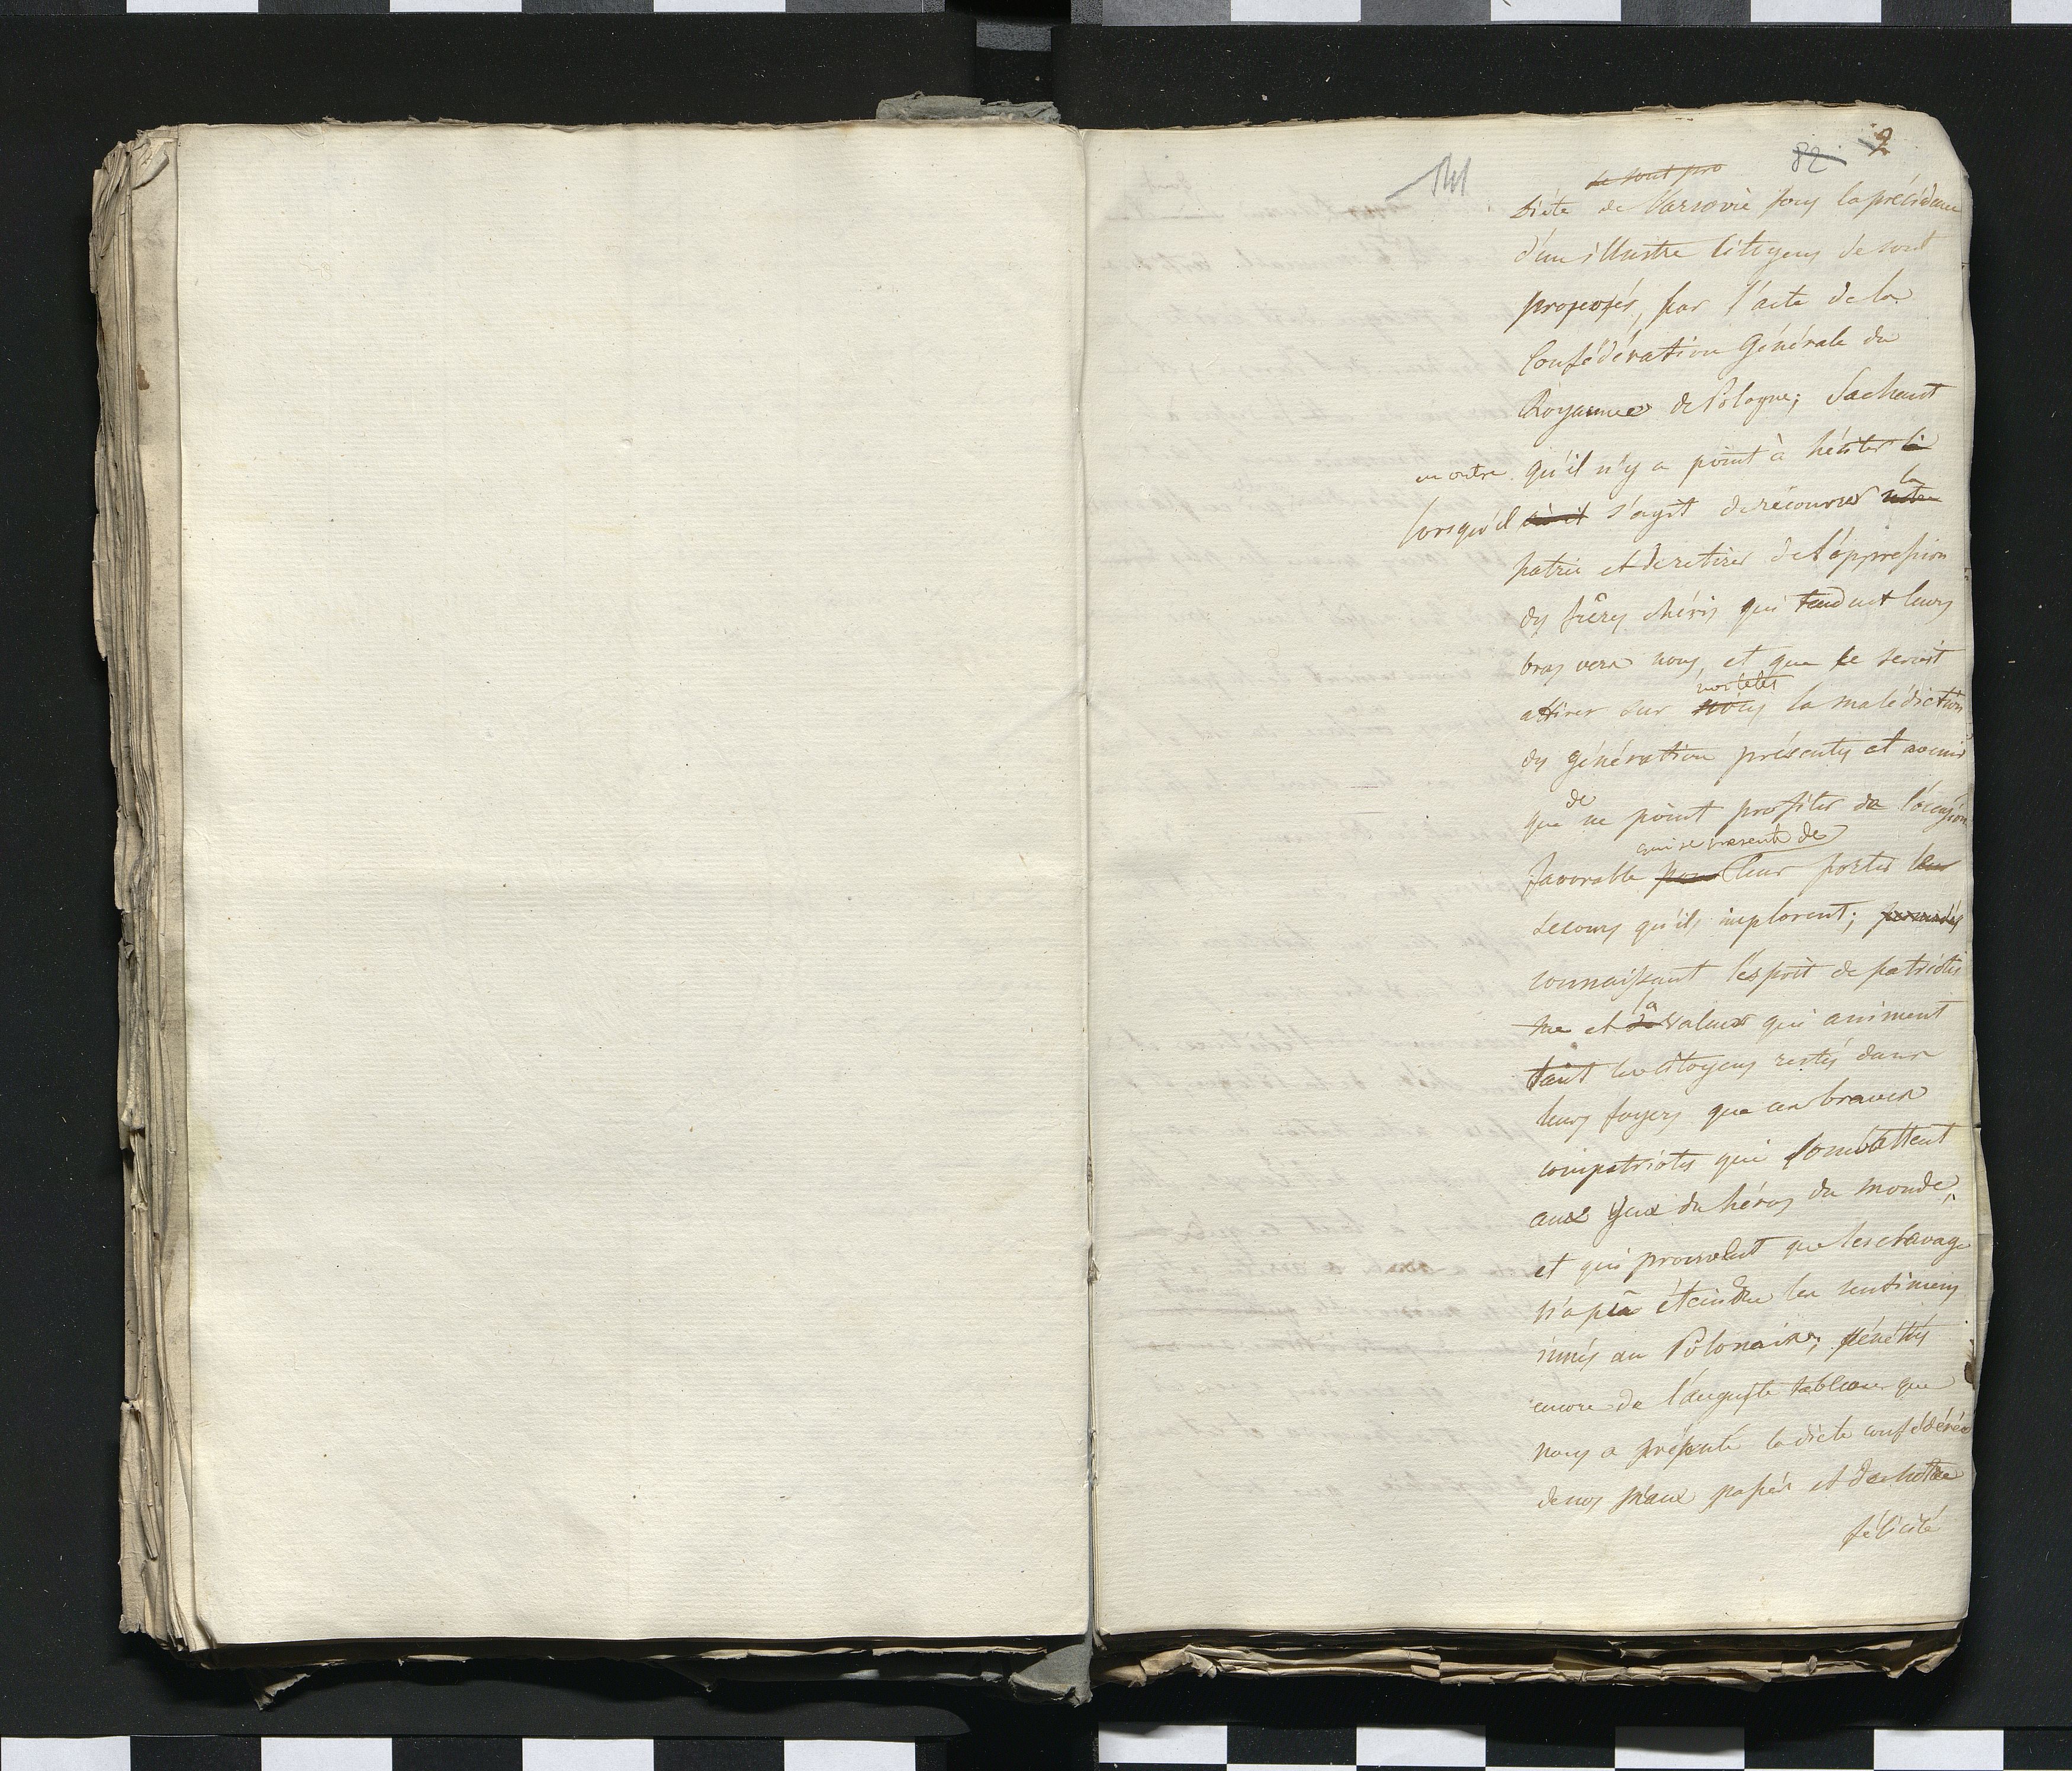 82 2
141
se sont pro
Diéte de Varsovie sous la présidence
d'un illustre Citoyens se sont
proposés, par l'acte de la
Confédération Générale du
Royaume de Pologne; Sachant
en outre qu'il n'y a point à hésiter
lorsqu'il s'agit de récouvrer notre la
patrie et de retirer de l'oppression
des frêres chéris qui tendent leurs
bras vers nous, et que ce seroit
nos têtes
attirer sur nous la malédiction
des génération présentes et avenir
de
que ne point profiter de l'ócasion
qui se presente de
favorable pour leur porter leur
secours qu'ils implorent;
connaissant l'esprit de patriotis
la
me et de valeur qui animent
tant les Citoyens restés dans
leurs foyers que ces braves
compatriotes qui combattent
aux yeux du héros du monde,
et qui prouvent que l'esclavage
n'a pû éteindre les sentimens
innés au Polonais; pénétrés
encore de l'auguste tableau que
nous a présenté la diéte confédérée
de nos maux passés et de notre
félicité